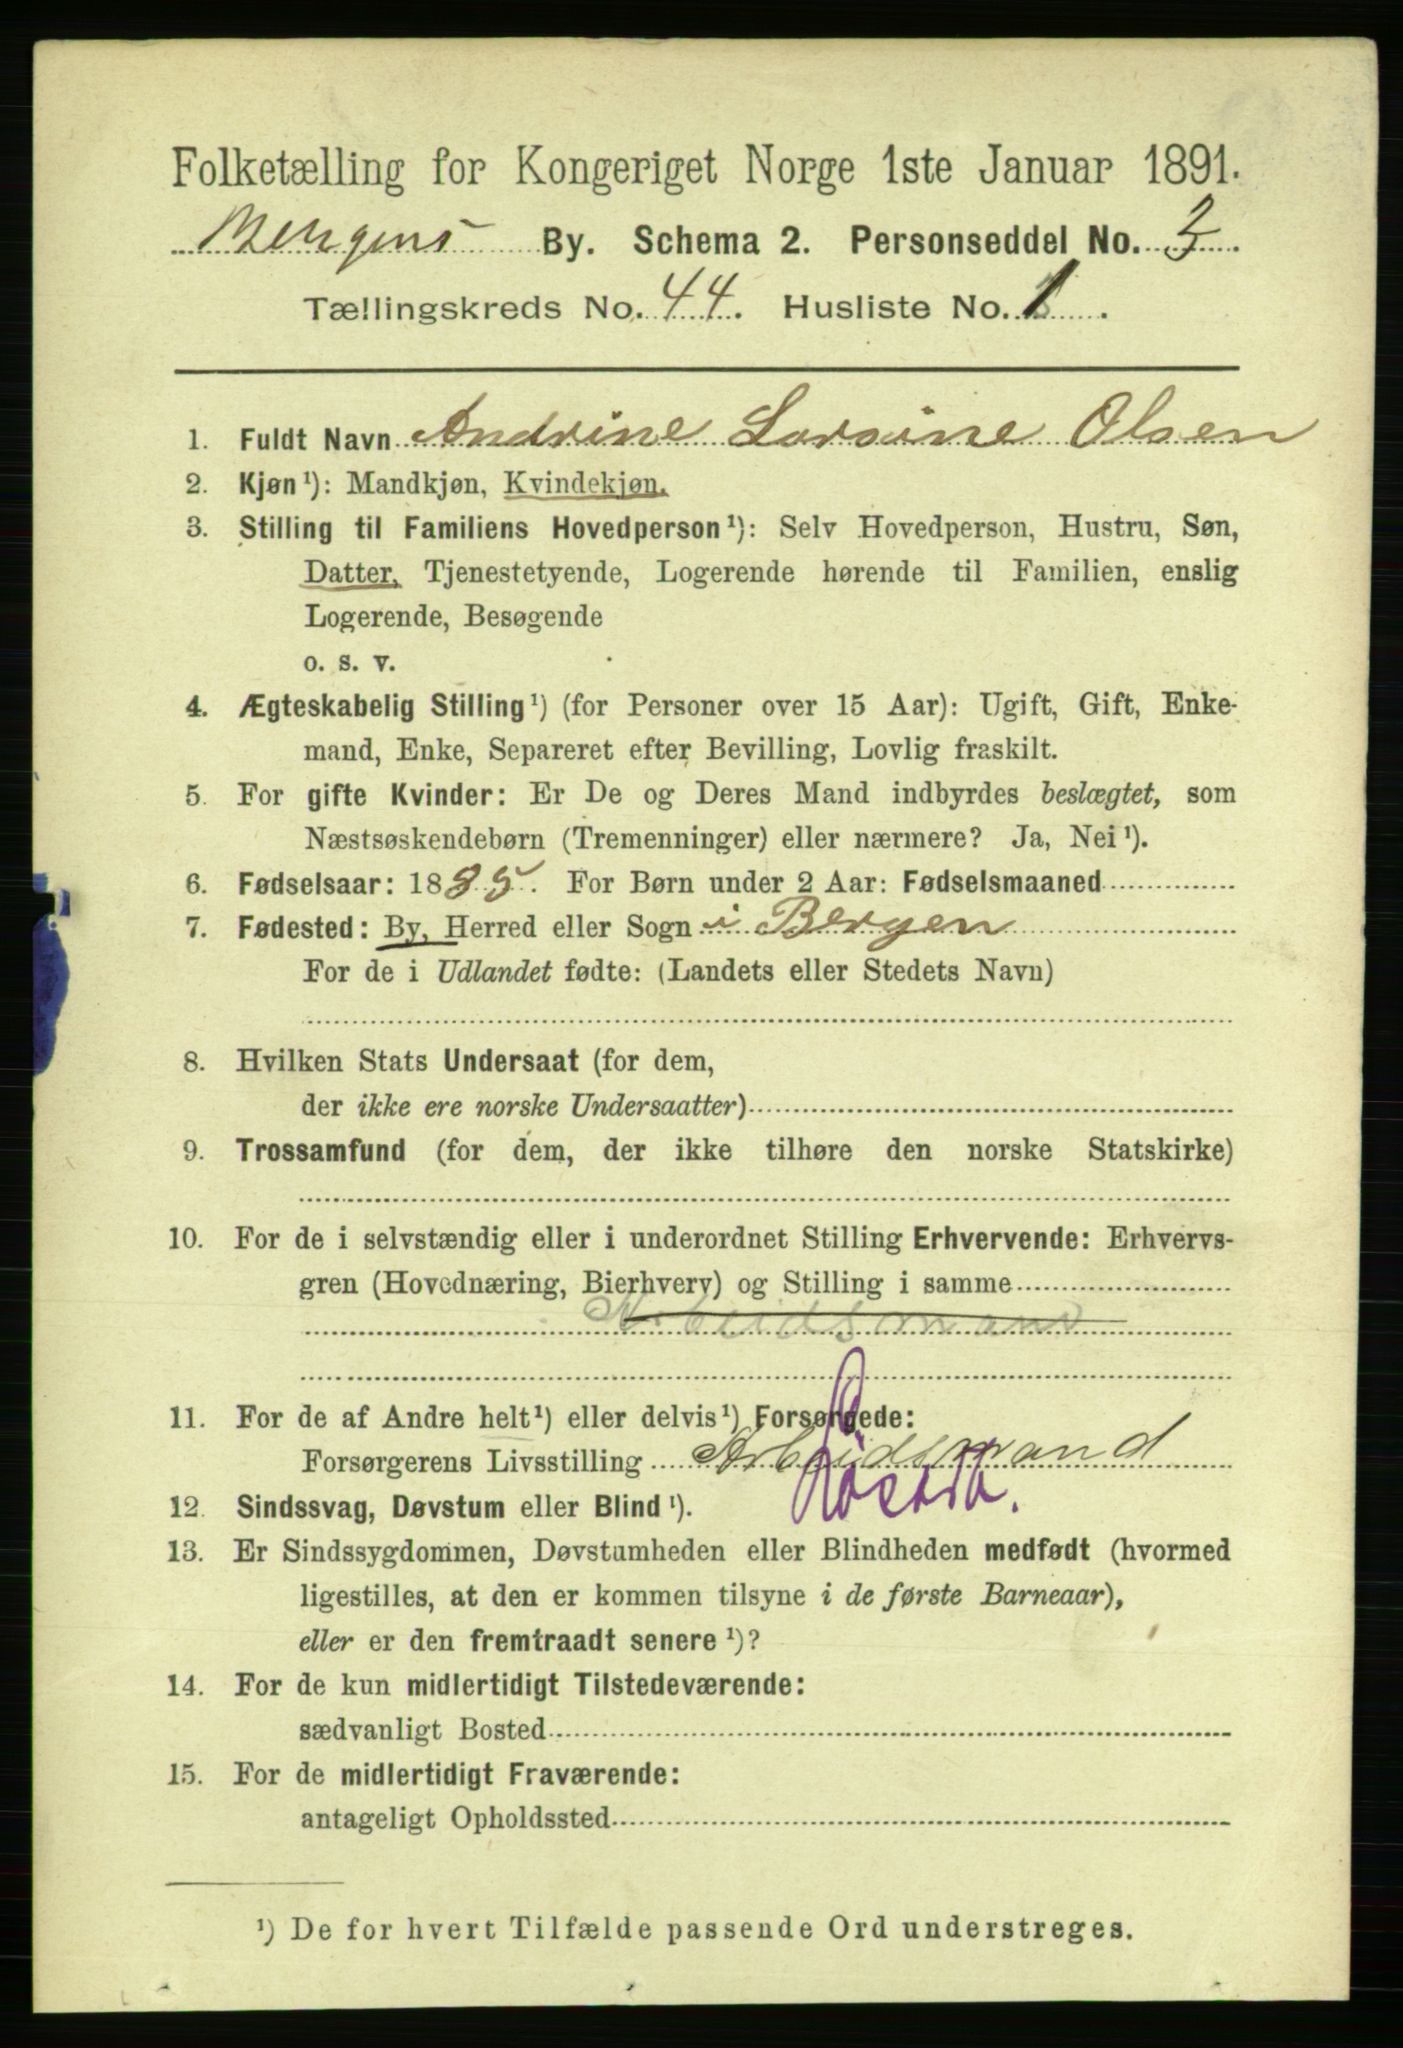 Folketælling for Kongeriget Norge 1ste Januar 1891.
Bergens By. Schema 2. Personseddel No. 3.
Tællingskreds No. 44. Husliste No. 1.
1. Fuldt Navn Andrine Larsine Olsen
2. Kjøn ¹): Mandkjøn, Kvindekjøn.
3. Stilling til Familiens Hovedperson ¹): Selv Hovedperson, Hustru, Søn,
Datter, Tjenestetyende, Logerende hørende til Familien, enslig
Logerende, Besøgende
o. s. v.
4. Ægteskabelig Stilling ¹) (for Personer over 15 Aar): Ugift, Gift, Enke-
mand, Enke, Separeret efter Bevilling, Lovlig fraskilt.
5. For gifte Kvinder: Er De og Deres Mand indbyrdes beslægtet, som
Næstsøskendebørn (Tremenninger) eller nærmere? Ja, Nei ¹).
6. Fødselsaar: 1885. For Børn under 2 Aar: Fødselsmaaned
7. Fødested: By, Herred eller Sogn i Bergen
For de i Udlandet fødte: (Landets eller Stedets Navn)
8. Hvilken Stats Undersaat (for dem,
der ikke ere norske Undersaatter)
9. Trossamfund (for dem, der ikke tilhøre den norske Statskirke)
10. For de i selvstændig eller i underordnet Stilling Erhvervende: Erhvervs-
gren (Hovednæring, Bierhverv) og Stilling i samme
Arbeidsmand
11. For de af Andre helt ¹) eller delvis ¹) Forsørgede:
Forsørgerens Livsstilling Arbeidsmand
12. Sindssvag, Døvstum eller Blind ¹).
13. Er Sindssygdommen, Døvstumheden eller Blindheden medfødt (hvormed
ligestilles, at den er kommen tilsyne i de første Barneaar),
eller er den fremtraadt senere ¹)?
14. For de kun midlertidigt Tilstedeværende:
sædvanligt Bosted
15. For de midlertidigt Fraværende:
antageligt Opholdssted
¹) De for hvert Tilfælde passende Ord understreges.